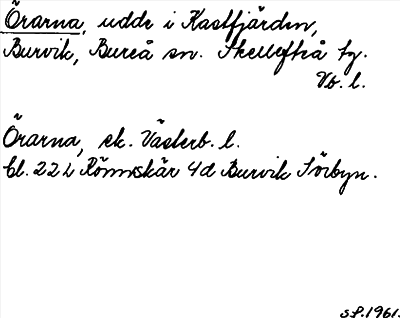 Örarna, udde i Kastfjärden,
Burvik, Bureå sn. Skellefteå tg.
Vb. l.
Örarna, ek. Västerb. l.
bl. 22 L Rönnskär 4d Burvik Sörbyn.
S.P. 1961.